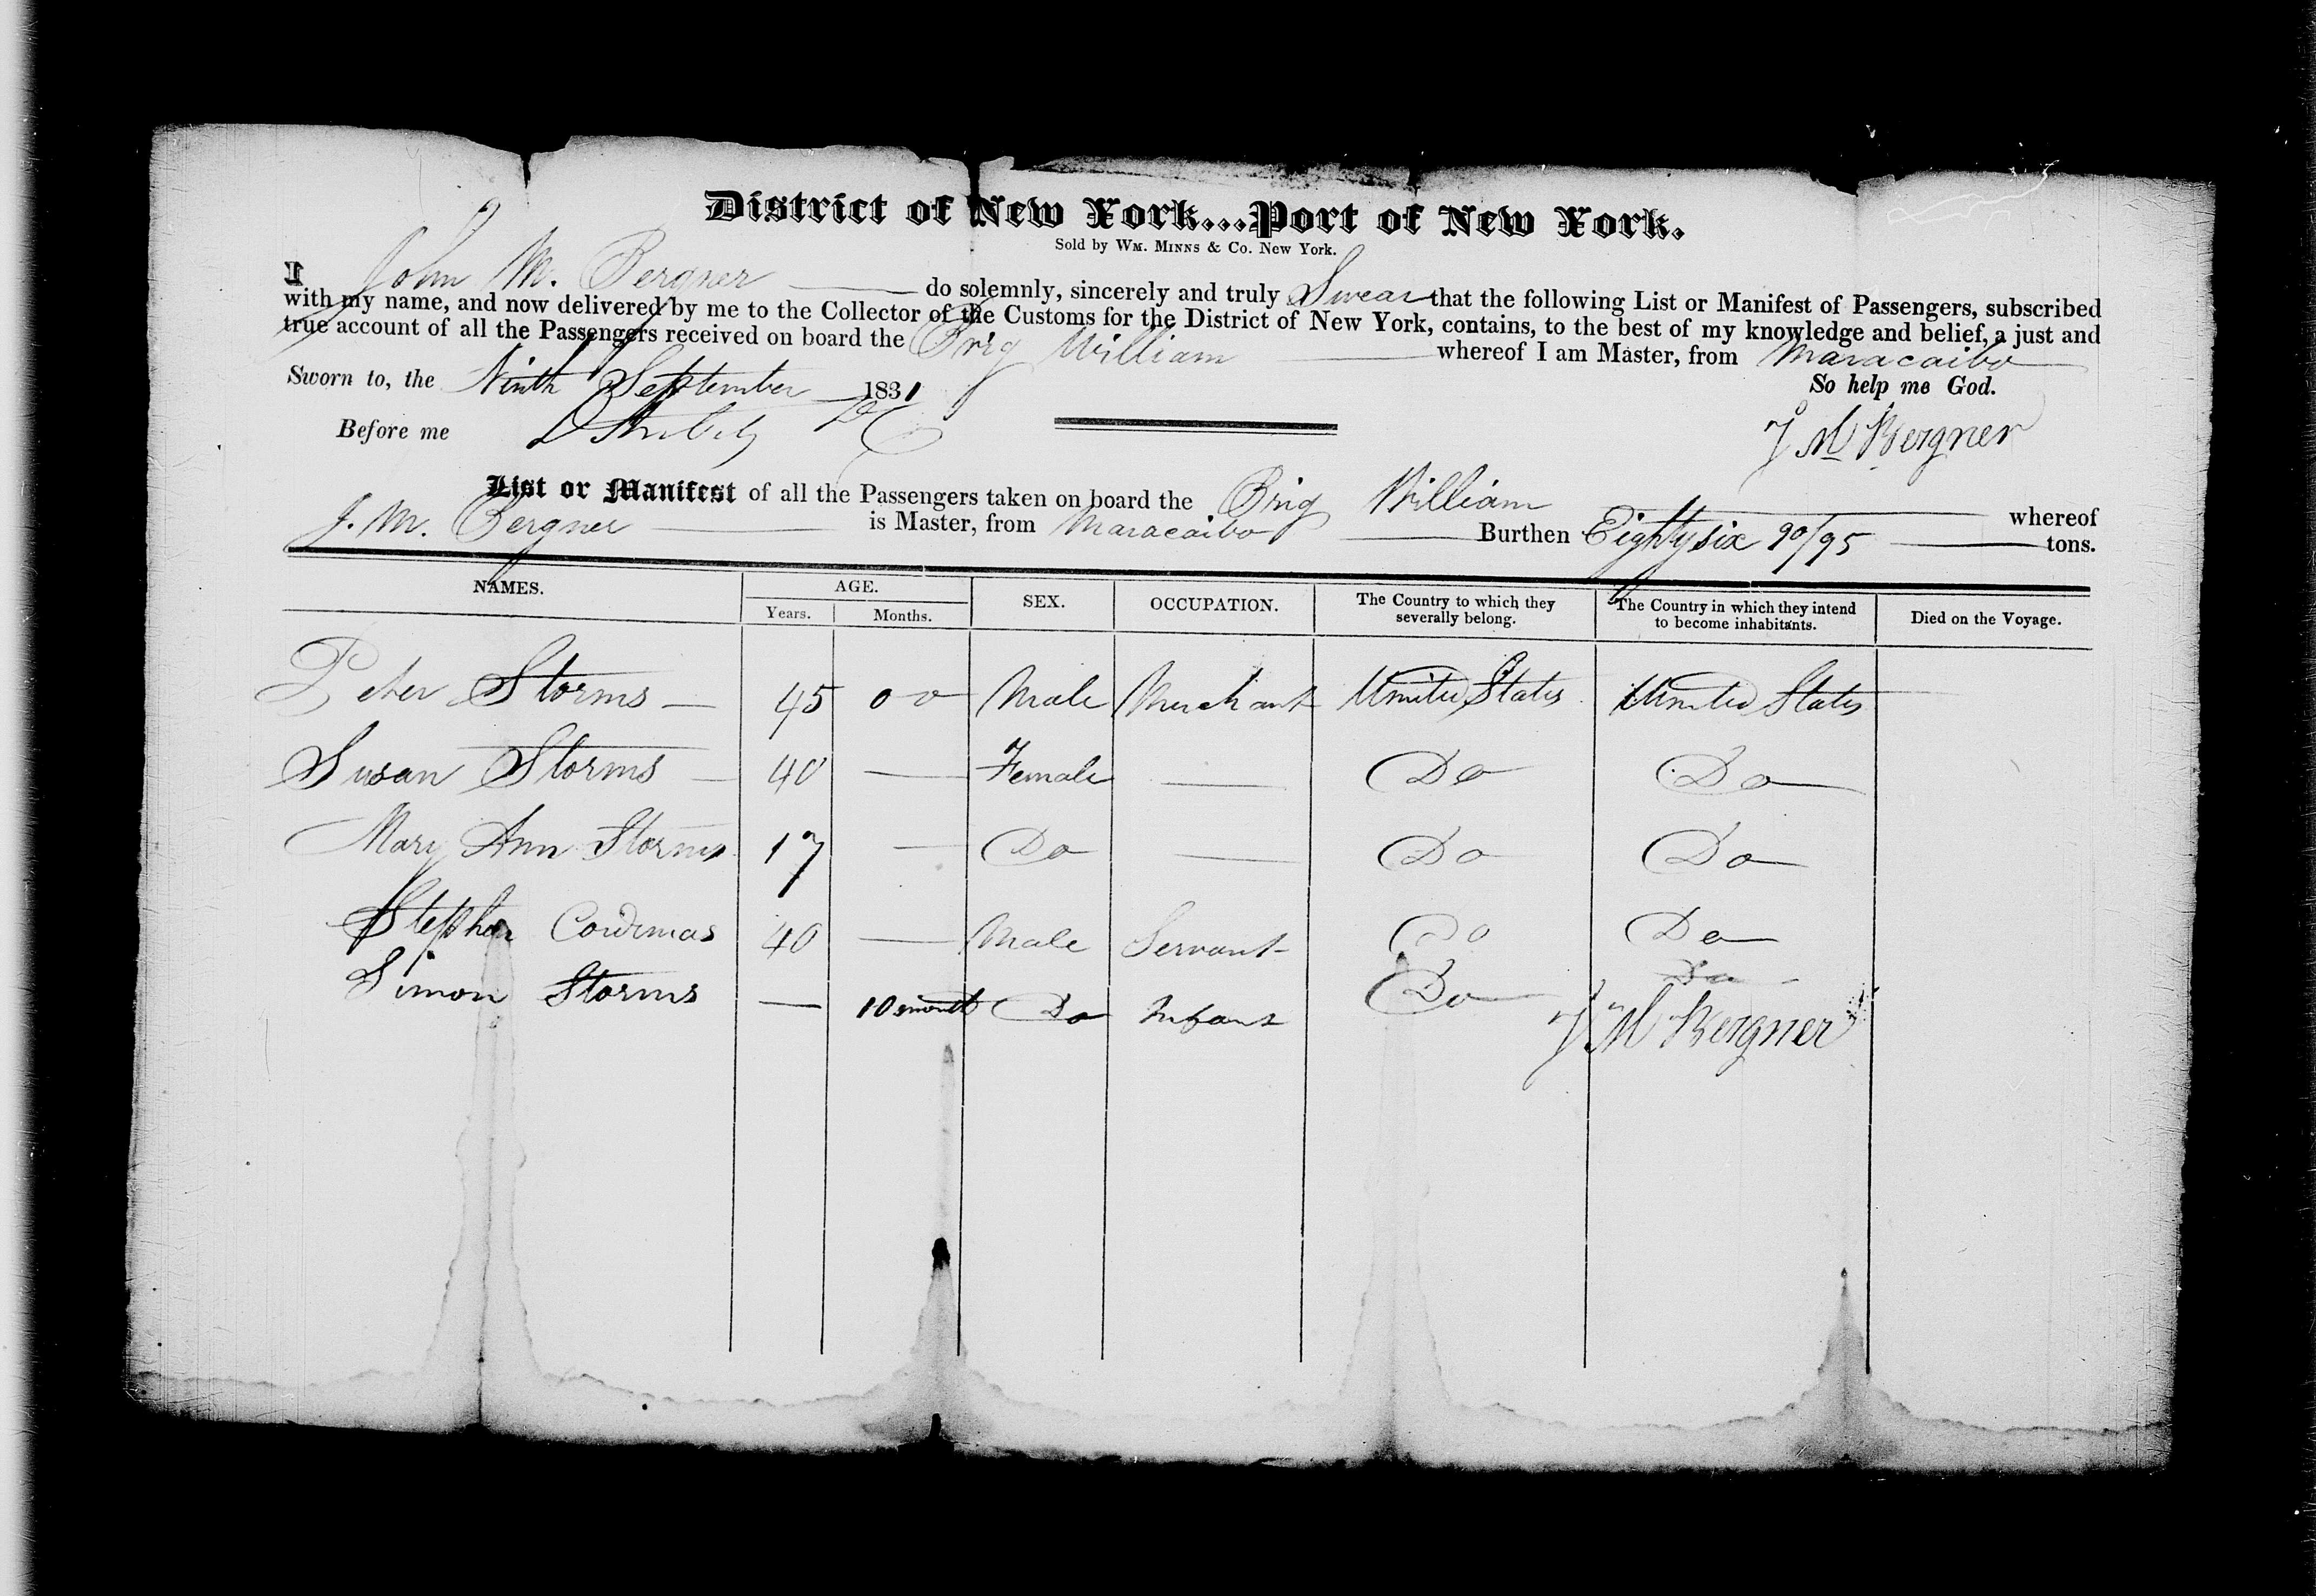 District of New York...Port of New York.
Sold by WM. MINNS & Co. New York.
I John M. Bergner do solemnly, sincerely and truly Swear that the following List or Manifest of Passengers, subscribed
with my name, and now delivered by me to the Collector of the Customs for the District of New York, contains, to the best of my knowledge and belief, a just and
true account of all the Passengers received on board the Brig William whereof I am Master, from Maracaibo
Sworn to, the Ninth September 1831 So help me God.
Before me J M Bergner
List or Manifest of all the Passengers taken on board the Brig William whereof
J. M. Bergner is Master, from Maracaibo Burthen Eighty six 90/95 tons.
NAMES. AGE. SEX. OCCUPATION. The Country to which they severally belong. The Country in which they intend to become inhabitants. Died on the Voyage.
Years. Months.
Peter Storms — 45 0 0 Male Merchant United States United States
Susan Storms — 40 — Female — Do Do
Mary Ann Storms 17 — Do — Do Do
Stephen 40 — Male Servant Do Do
Simon Storms — 10 month Do Infant Do Do
J M Bergner